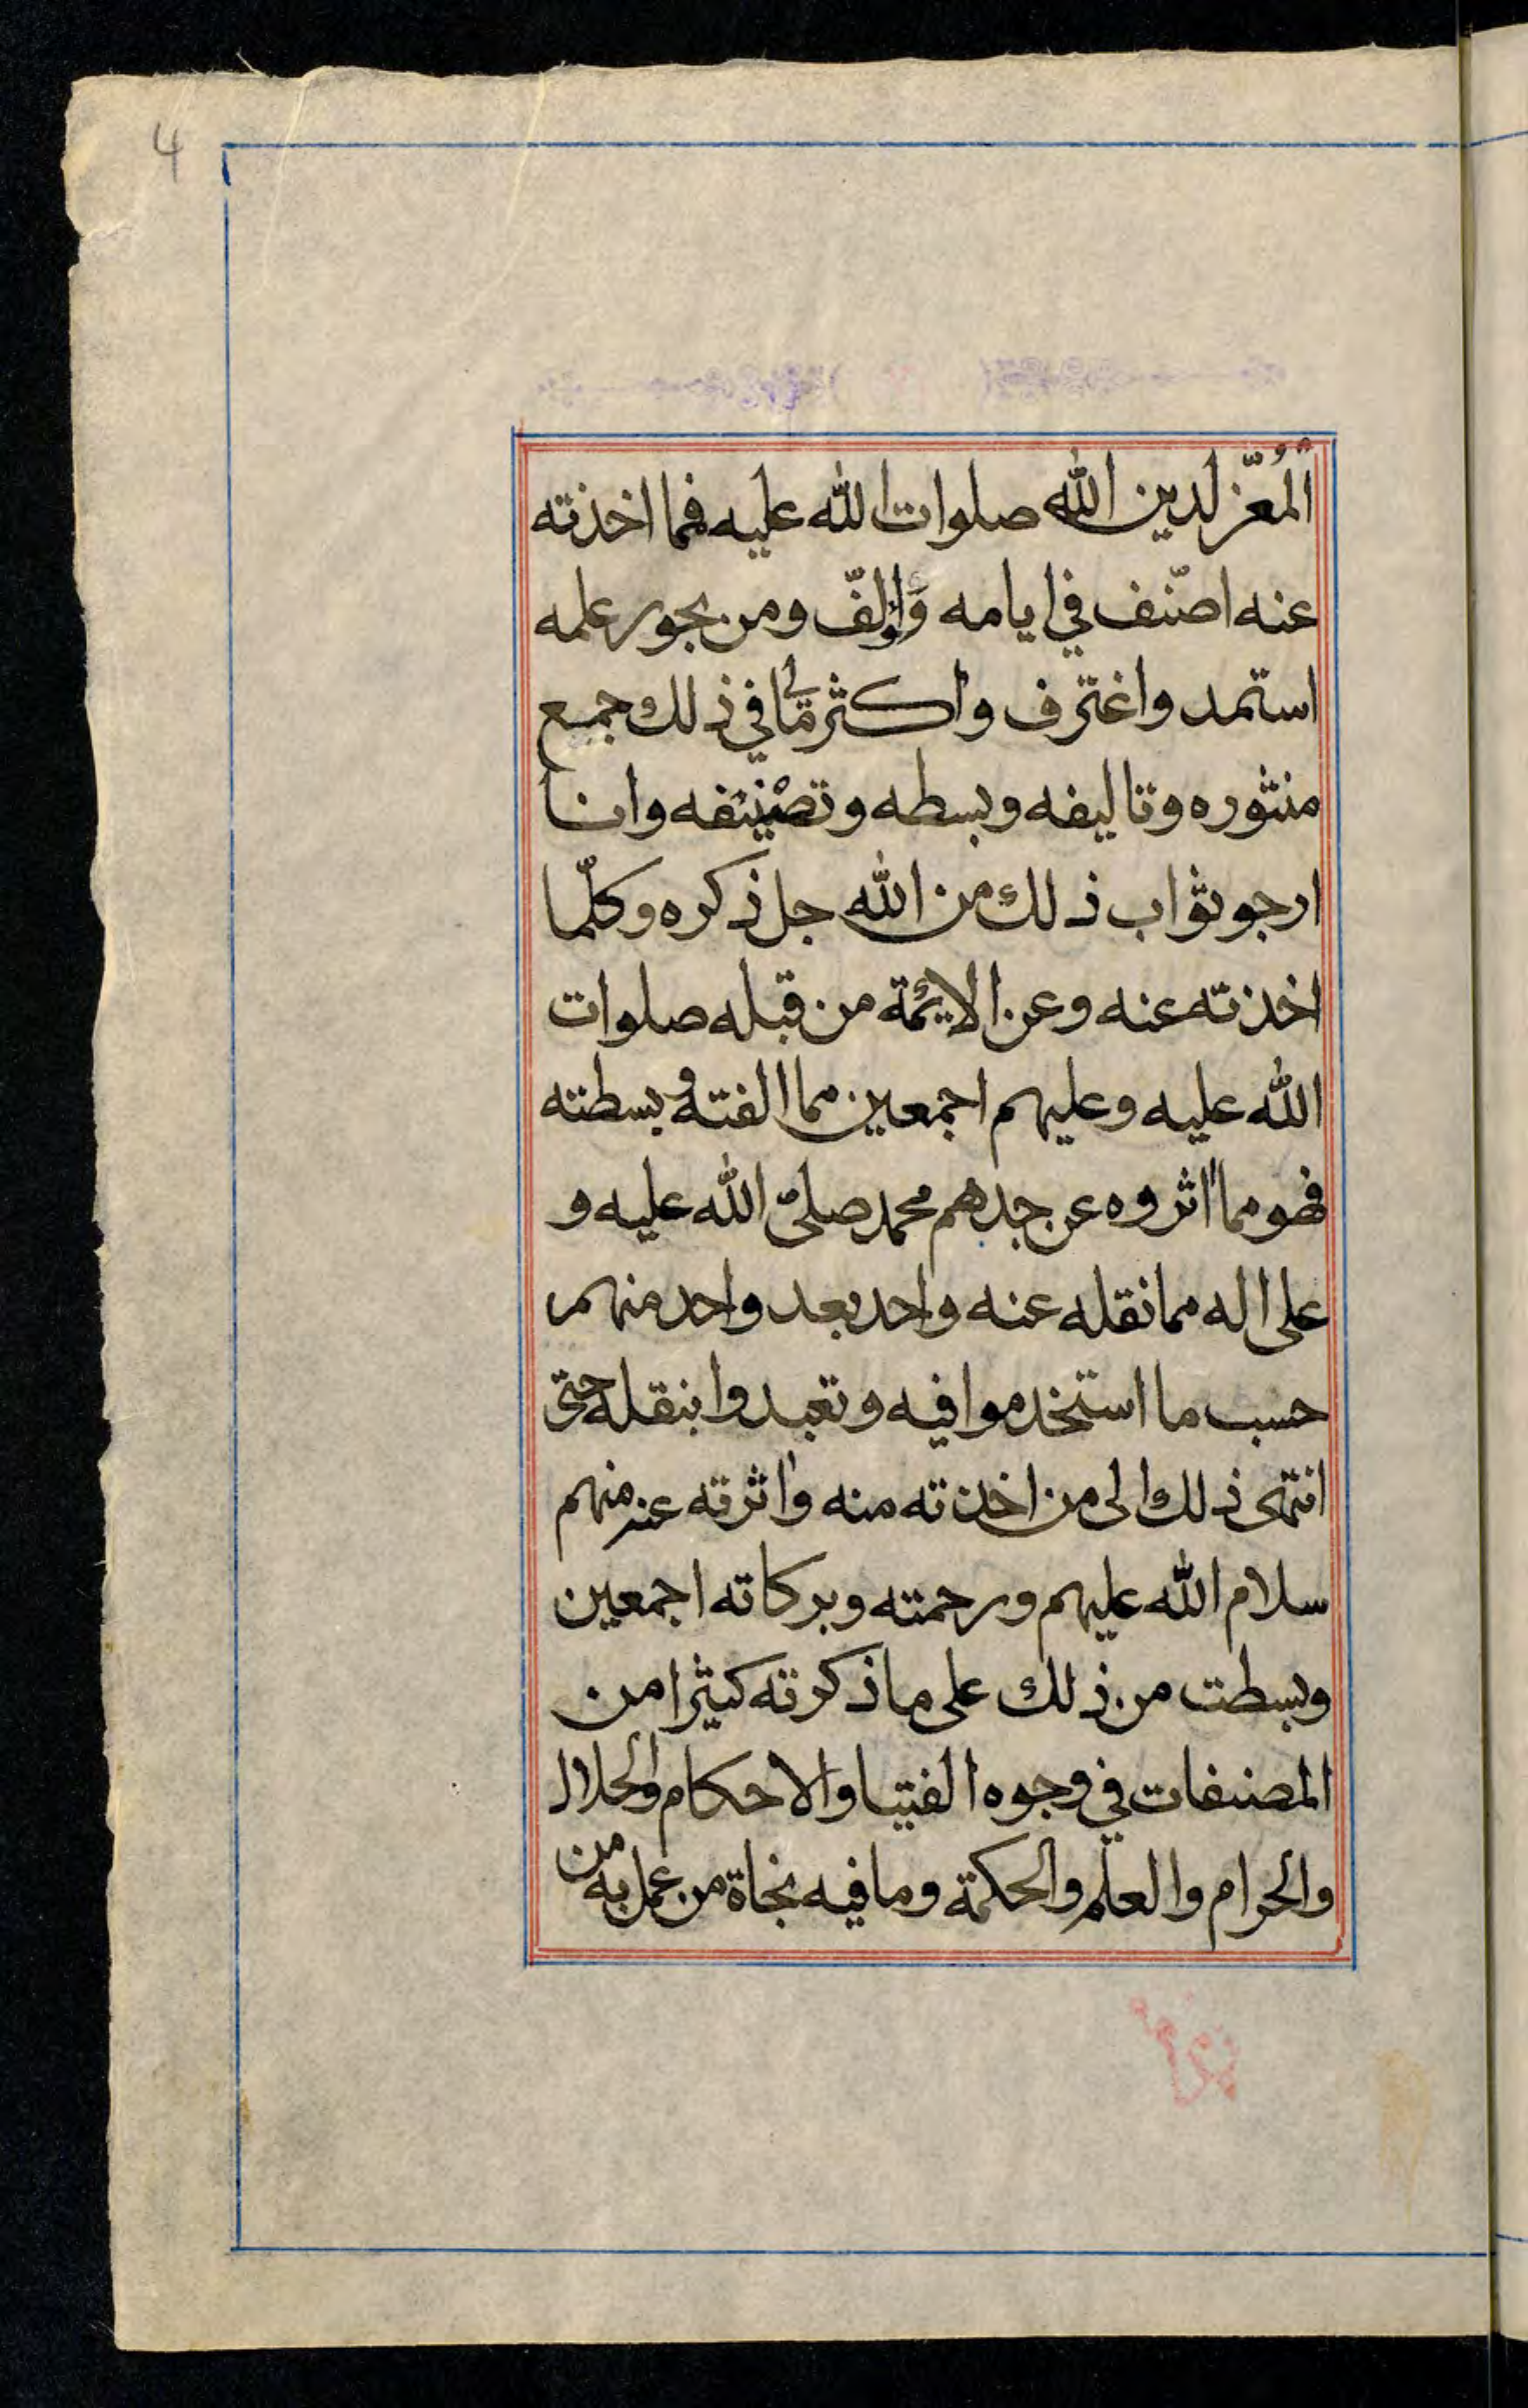 4
المُعزّ لدين الله صلوات الله عليه فمما اخذته
عنه اصنّف في ايامه وَاؤلّف ومن بحور علمه
استمد واغترف واكثر مالي في ذلك جمع
منثوره وتاليفه وبسطه وتصنيفه وانا
ارجو ثواب ذلك من الله جل ذكره وكلّما
اخذته عنه وعن الايمّة من قبله صلوات
الله عليه وعليهم اجمعين مما الفته وبسطته
فهو مما اثروه عن جدهم محمد صلىّ الله عليه و
على اله مما نقله عنه واحد بعد واحد منهم
حسب ما استخدموا فيه وتعبدوا بنقله حتى
انتهى ذلك الى من اخذته منه واثرته عنه منهم
سلام الله عليهم ورحمته وبركاته اجمعين
وبسطت من ذلك على ما ذكرته كثيرا من
المصنفات في وجوه الفتيا والاحكام والحلال
والحرام والعلم والحكمة وما فيه نجاة من عمل به من